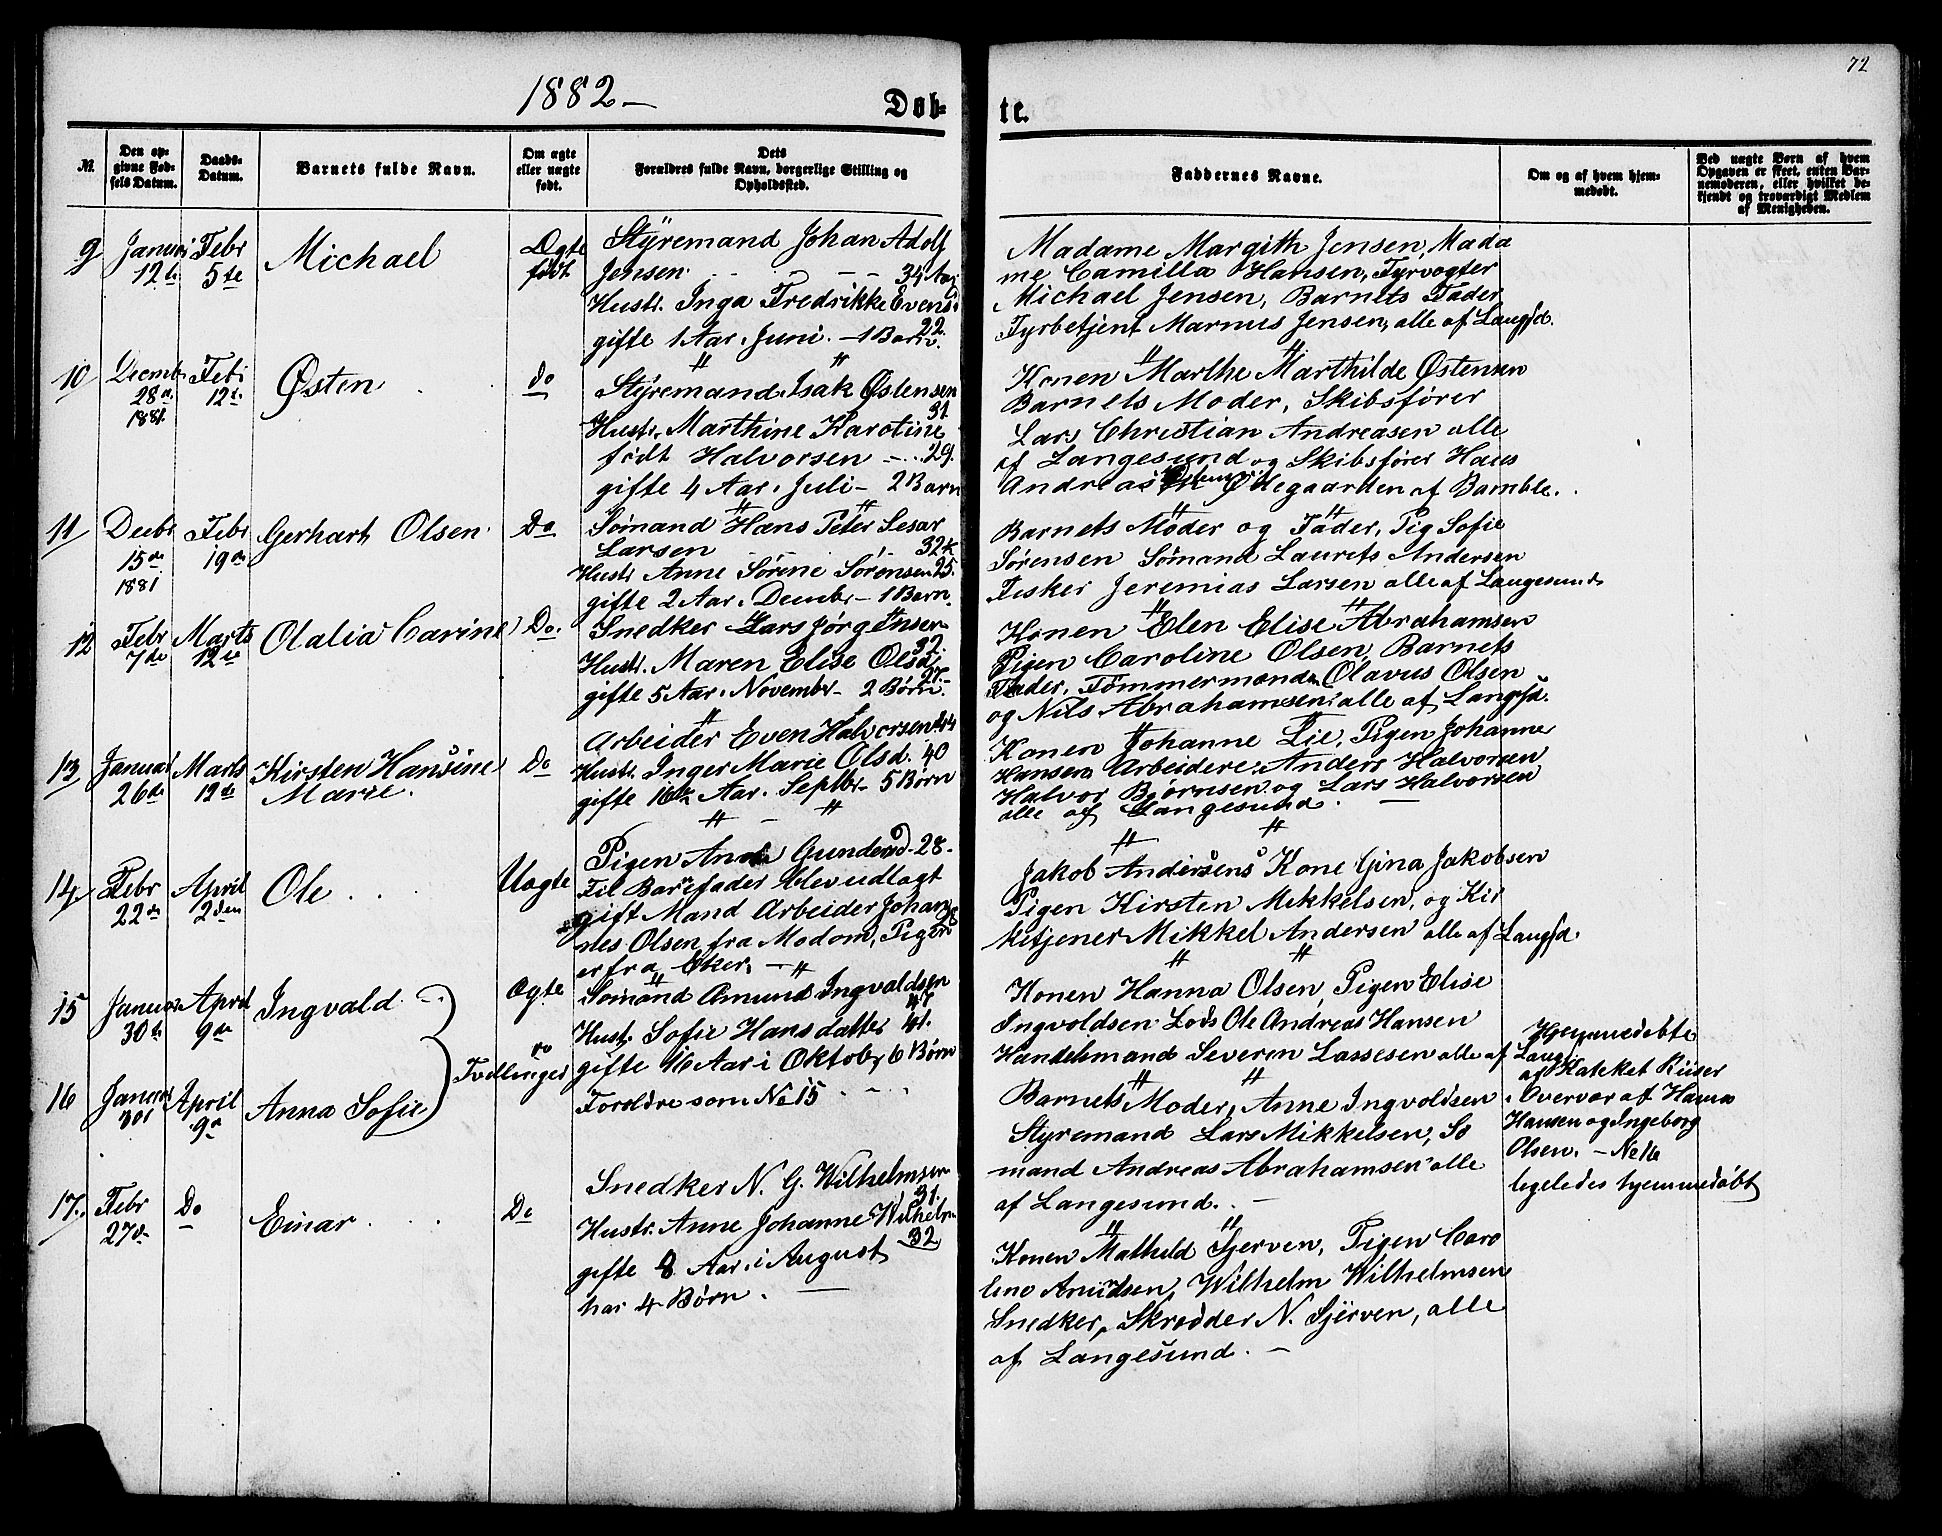 72
1882 –
Døb-
te.
№
Den op-
givne Fød-
sels Datum.
Daabs-
Datum.
Barnets fulde Navn.
Om ægte
eller uægte
født.
Dets
Forældres fulde Navn, borgerlige Stilling og
Opholdssted.
Faddernes Navne.
Om og af hvem hjem-
medøbt.
Ved uægte Børn af hvem
Opgaven er skeet, enten Bar-
nemoderen, eller hvilket be-
kjendt og troværdigt Medlem
af Menigheden.
9
Januar
12te
Febr
5te
Michael
Ægte
født
Styremand Johan Adolf
Jensen 34 Aar
Hustr. Inga Fredrikke Evens
22
gifte 1 Aar i Juni. – 1 Barn.
Madame Margith Jensen, Mada
me Camilla Hansen, Fyrvogter
Michael Jensen, Barnets Fader
Fyrbetjent Marnus Jensen, alle af Langsd.
10
Decmbr
28de
1881
Febr
12te
Østen
do
Styremand Isak Østensen
31
Hustr. Marthine Karoline
født Halvorsen – 29.
gifte 4 Aar i Juli – 2 Barn
Konen Marthe Marthilde Østensen
Barnets Moder, Skibsfører
Lars Christian Andreasen alle
af Langesund og Skibsfører Hans
Andreas Ødegaarden af Bamble.
11
Decbr
15de
1881
Febr
19de
Gerhart Olsen
Do
Sømand Hans Peter Sesar
Larsen 32
Hustr Anne Sørine Sørensen 25.
gifte 2 Aar i Decmbr – 1 Barn.
Barnets Moder og Fader, Pig Sofie
Sørensen Sømand Laurits Andersen
Fisker Jeremias Larsen alle af Langesund
12
Febr
7de
Marts
12te
Olalia Carine
Do.
Snedker Lars Jørgensen
32.
Hustr. Maren Elise Olsd
27.
gifte 5 Aar i Novembr – 2 Børn.
Konen Elen Elise Abrahamsen
Pigen Caroline Olsen, Barnets
Fader, Tømmermænden Olavus Olsen
og Nils Abrahamsen alle af Langsd.
13
Januar
26de
Marts
12te
Kirsten Hansine
Marie.
Do
Arbeider Even Halvorsen 44
Hustr. Inger Marie Olsd. 40
gifte 16 Aar i Septbr – 5 Børn
Konen Johanne Lie, Pigen Johanne
Hansen Arbeidere Anders Halvorsen
Halvor Bjørnsen og Lars Halvorsen
alle af Langesund.
14.
Febr
22de
April
2den
Ole
Uægte
Pigen Anna Gundersd – 28 –
Til Barnefader blev udlagt
gift Mand Arbeider Johan
nes Olsen fra Modom, Pigen
er fra Eker.
Jakob Andersens Kone Gina Jakobsen
Pigen Kirsten Mikkelsen, og Kir
ketjener Mikkel Andersen alle af Langsd.
15
Januar
30te
April
9de
Ingvald
Ægte
Sømand Amund Ingvaldsen
47
Hust. Sofie Hansdatter 41.
gifte 16 Aar i Oktobr 6 Børn
Konen Hanna Olsen, Pigen Elise
Ingvoldsen Lods Ole Andreas Hansen
Handelsmand Severin Lassesen alle af Langsd.
Hjemmedøbte
af Kateket Riiser
i Overvær af Hanna
Hansen og Ingeborg
Olsen. – No 16
ligeledes hjemmedøbt
Tvillinger
16
Januar
30te
April
9de
Anna Sofie
do
Foreldre som No 15
Barnets Moder, Anne Ingvoldsen
Styremand Lars Mikkelsen, Sø
mand Andreas Abrahamsen alle
af Langesund.
17.
Febr
27de
Do
Einar
Do
Snedker N. G. Wilhelmsen
31.
Hustr. Anne Johanne Wilhelm
32
gifte 8 Aar i August
har 4 Børn.
Konen Mathild Sjerven, Pigen Caro
line Amundsen, Wilhelm Wilhelmsen
Snedker, Skredder N. Sjerven, alle
af Langesund.